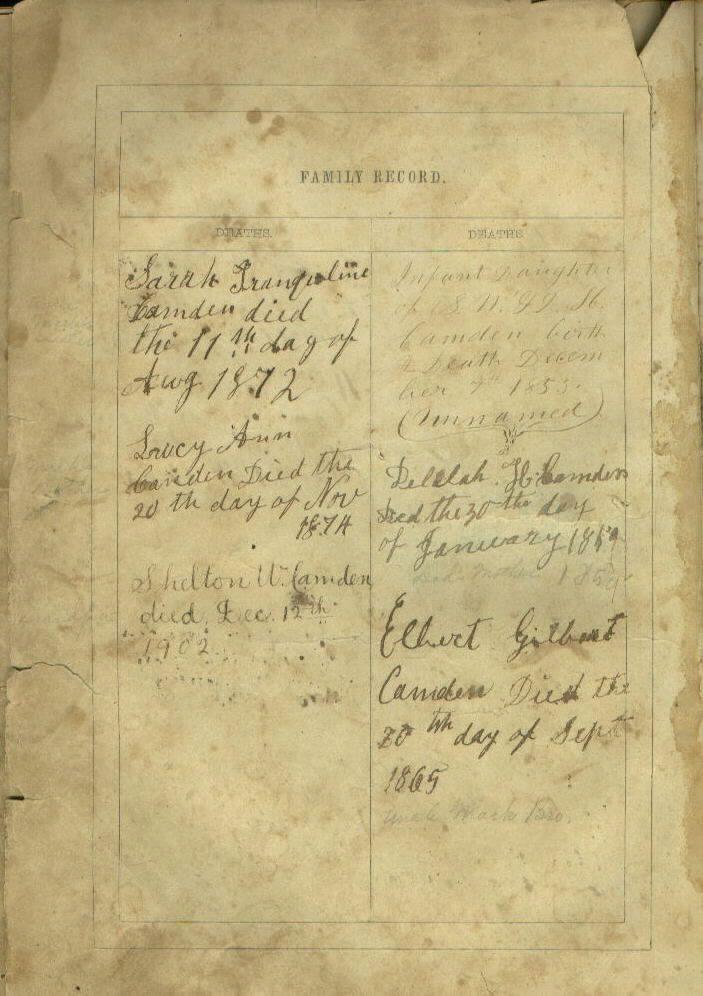 FAMILY RECORD.
DEATHS.
Sarah Tranquline
Camden died
the 11th day of
Aug 1872
Lucy Ann
Camden Died the
20 th day of Nov
1874
Shelton W. Camden
died. Dec. 12th
1902.
DEATHS
Infant Daughter
of S. W. & D. H.
Camden birth
& Death Decem
ber 7th 1853.
(Unnamed)
Delilah. H. Camden
died the 30 the day
of Januwary 1859
Mother 1859
Elbert Gilbert
Camden Died the
20 th day of Sept
1865
Uncle Bro.